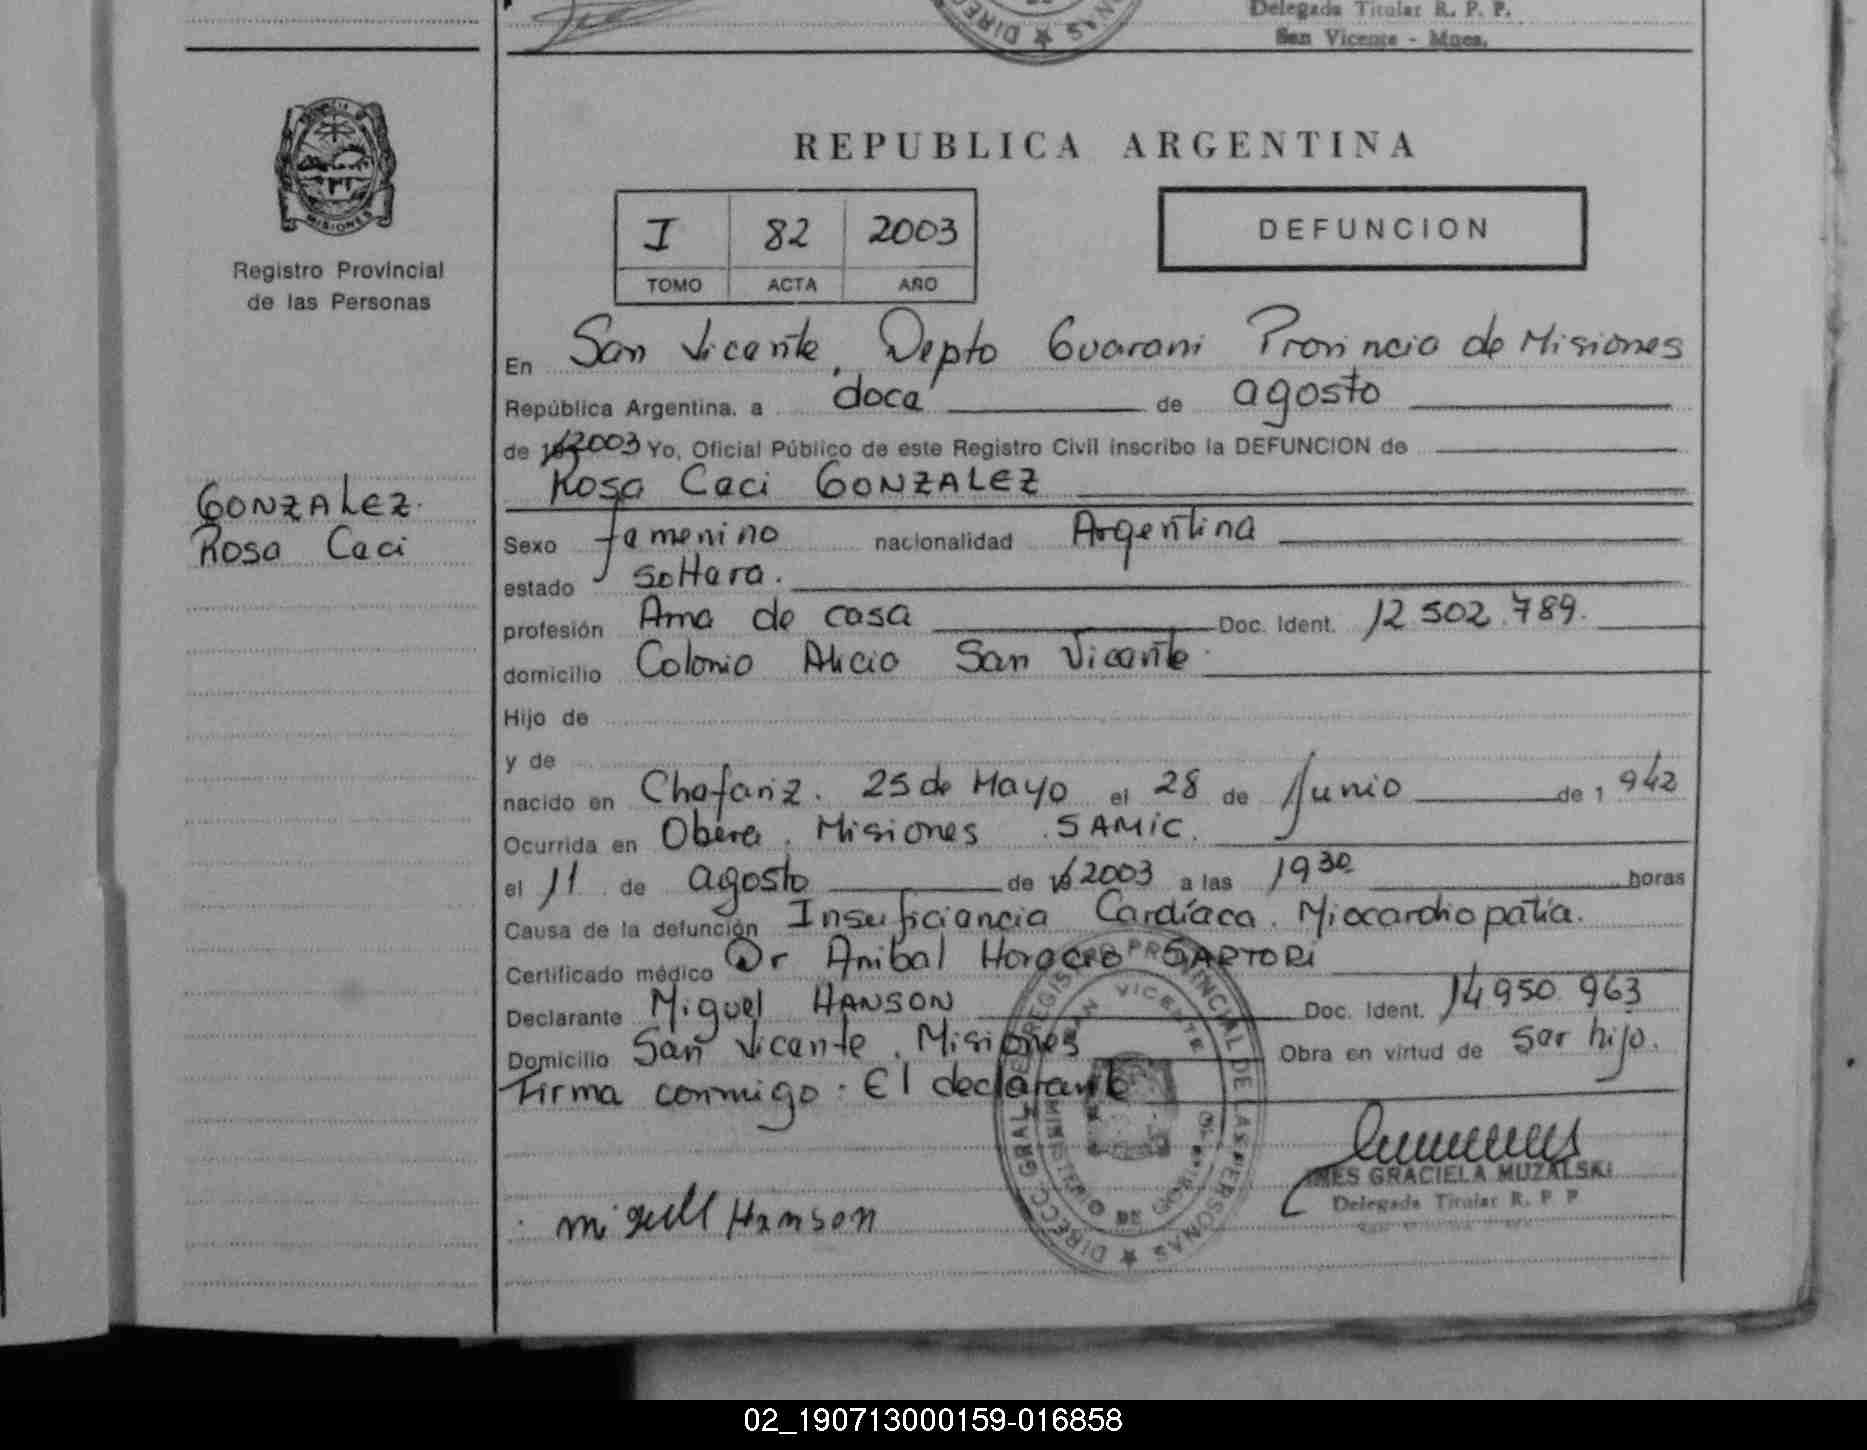 Delegada Titular R. P. P.
San Vicente - Mnes.
MISIONES
Registro Provincial
de las Personas
GONZALEZ.
Rosa Ceci
REPUBLICA ARGENTINA
I 82 2003
TOMO ACTA AÑO
DEFUNCION
En San Vicente, Depto Guarani Provincia de Misiones
República Argentina, a doce de agosto
de 2003 Yo, Oficial Público de este Registro Civil inscribo la DEFUNCION de
Rosa Ceci GONZALEZ
Sexo femenino nacionalidad Argentina
estado soltera.
profesión Ama de casa Doc. Ident. 12.502.789.
domicilio Colonia Alicia San Vicente
Hijo de
y de
nacido en Chafariz. 25 de Mayo el 28 de Junio de 1942
Ocurrida en Oberá, Misiones SAMIC.
el 11 de agosto de 2003 a las 19 30 horas
Causa de la defunción Insuficiencia Cardíaca. Miocardiopatía.
Certificado médico Dr Anibal Horacio SARTORI
Declarante Miguel HANSON Doc. Ident. 14.950.963
Domicilio San Vicente, Misiones Obra en virtud de ser hijo.
Firma conmigo: El declarante
DIRECC. GRAL. DE REGISTRO PROVINCIAL DE LAS PERSONAS
SAN VICENTE
MINISTERIO DE GOBIERNO
Hanson
INES GRACIELA MUZALSKI
Delegada Titular R. P. P
02_190713000159-016858